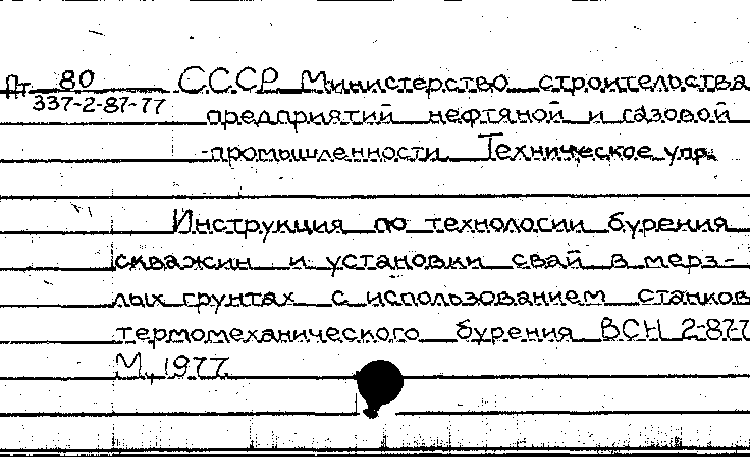 Пт 80 СССР Министерство строительства
337-2-87-77 предприятий нефтяной и газовой
промышленности. Техническое упр.
Инструкция по технологии бурения
скважин и установки свай в мерз-
лых грунтах с использованием станков
термомеханического бурения ВСН 2-87-7
М., 1977.